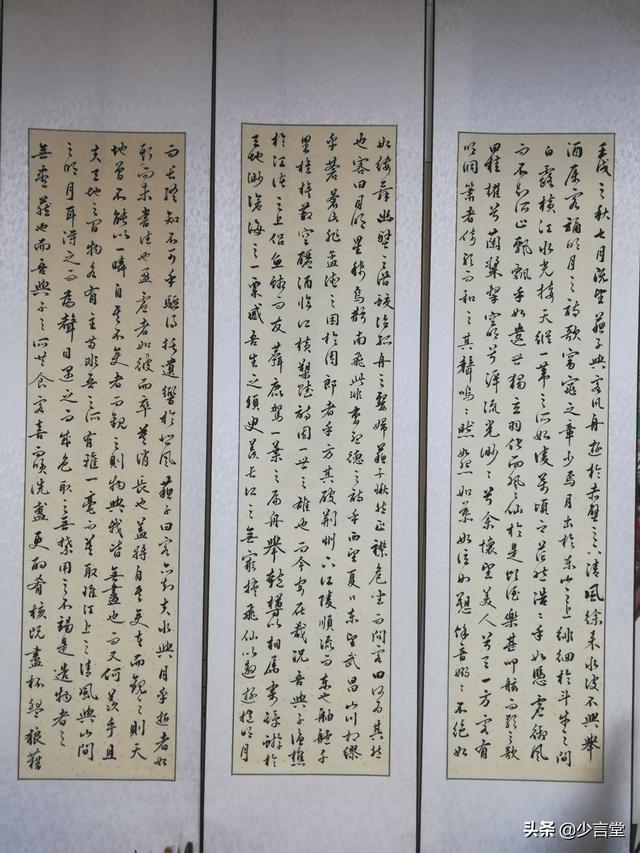 壬戌之秋七月既望蘇子與客泛舟遊於赤壁之下清風徐來水波不興舉
酒屬客誦明月之詩歌窈窕之章少焉月出於東山之上徘徊於斗牛之間
白露橫江水光接天縱一葦之所如凌萬頃之茫然浩浩乎如憑虛御風
而不知所止飄飄乎如遺世獨立羽化而登仙於是飲酒樂甚叩舷而歌之歌
曰桂棹兮蘭槳擊空明兮泝流光渺渺兮余懷望美人兮天一方客有
吹洞簫者倚歌而和之其聲嗚嗚然如怨如慕如泣如訴餘音嫋嫋不絕如
如縷舞幽壑之潛蛟泣孤舟之嫠婦蘇子愀然正襟危坐而問客曰何為其然
也客曰月明星稀烏鵲南飛此非曹孟德之詩乎西望夏口東望武昌山川相繆
乎蒼蒼此非孟德之困於周郎者乎方其破荊州下江陵順流而東也舳艫千
里旌旗蔽空釃酒臨江橫槊賦詩固一世之雄也而今安在哉況吾與子漁樵
於江渚之上侶魚蝦而友麋鹿駕一葉之扁舟舉匏樽以相屬寄蜉蝣於
天地渺滄海之一粟感吾生之須臾羨長江之無窮挾飛仙以遨遊抱明月
而長終知不可乎驟得托遺響於悲風蘇子曰客亦知夫水與月乎逝者如
斯而未嘗往也盈虛者如彼而卒莫消長也蓋將自其變者而觀之則天
地曾不能以一瞬自其不變者而觀之則物與我皆無盡也而又何羨乎且
夫天地之間物各有主苟非吾之所有雖一毫而莫取惟江上之清風與山間
之明月耳得之而為聲目遇之而成色取之無禁用之不竭是造物者之
無盡藏也而吾與子之所共食客喜笑洗盞更酌肴核既盡杯盤狼藉
头条 @少言堂